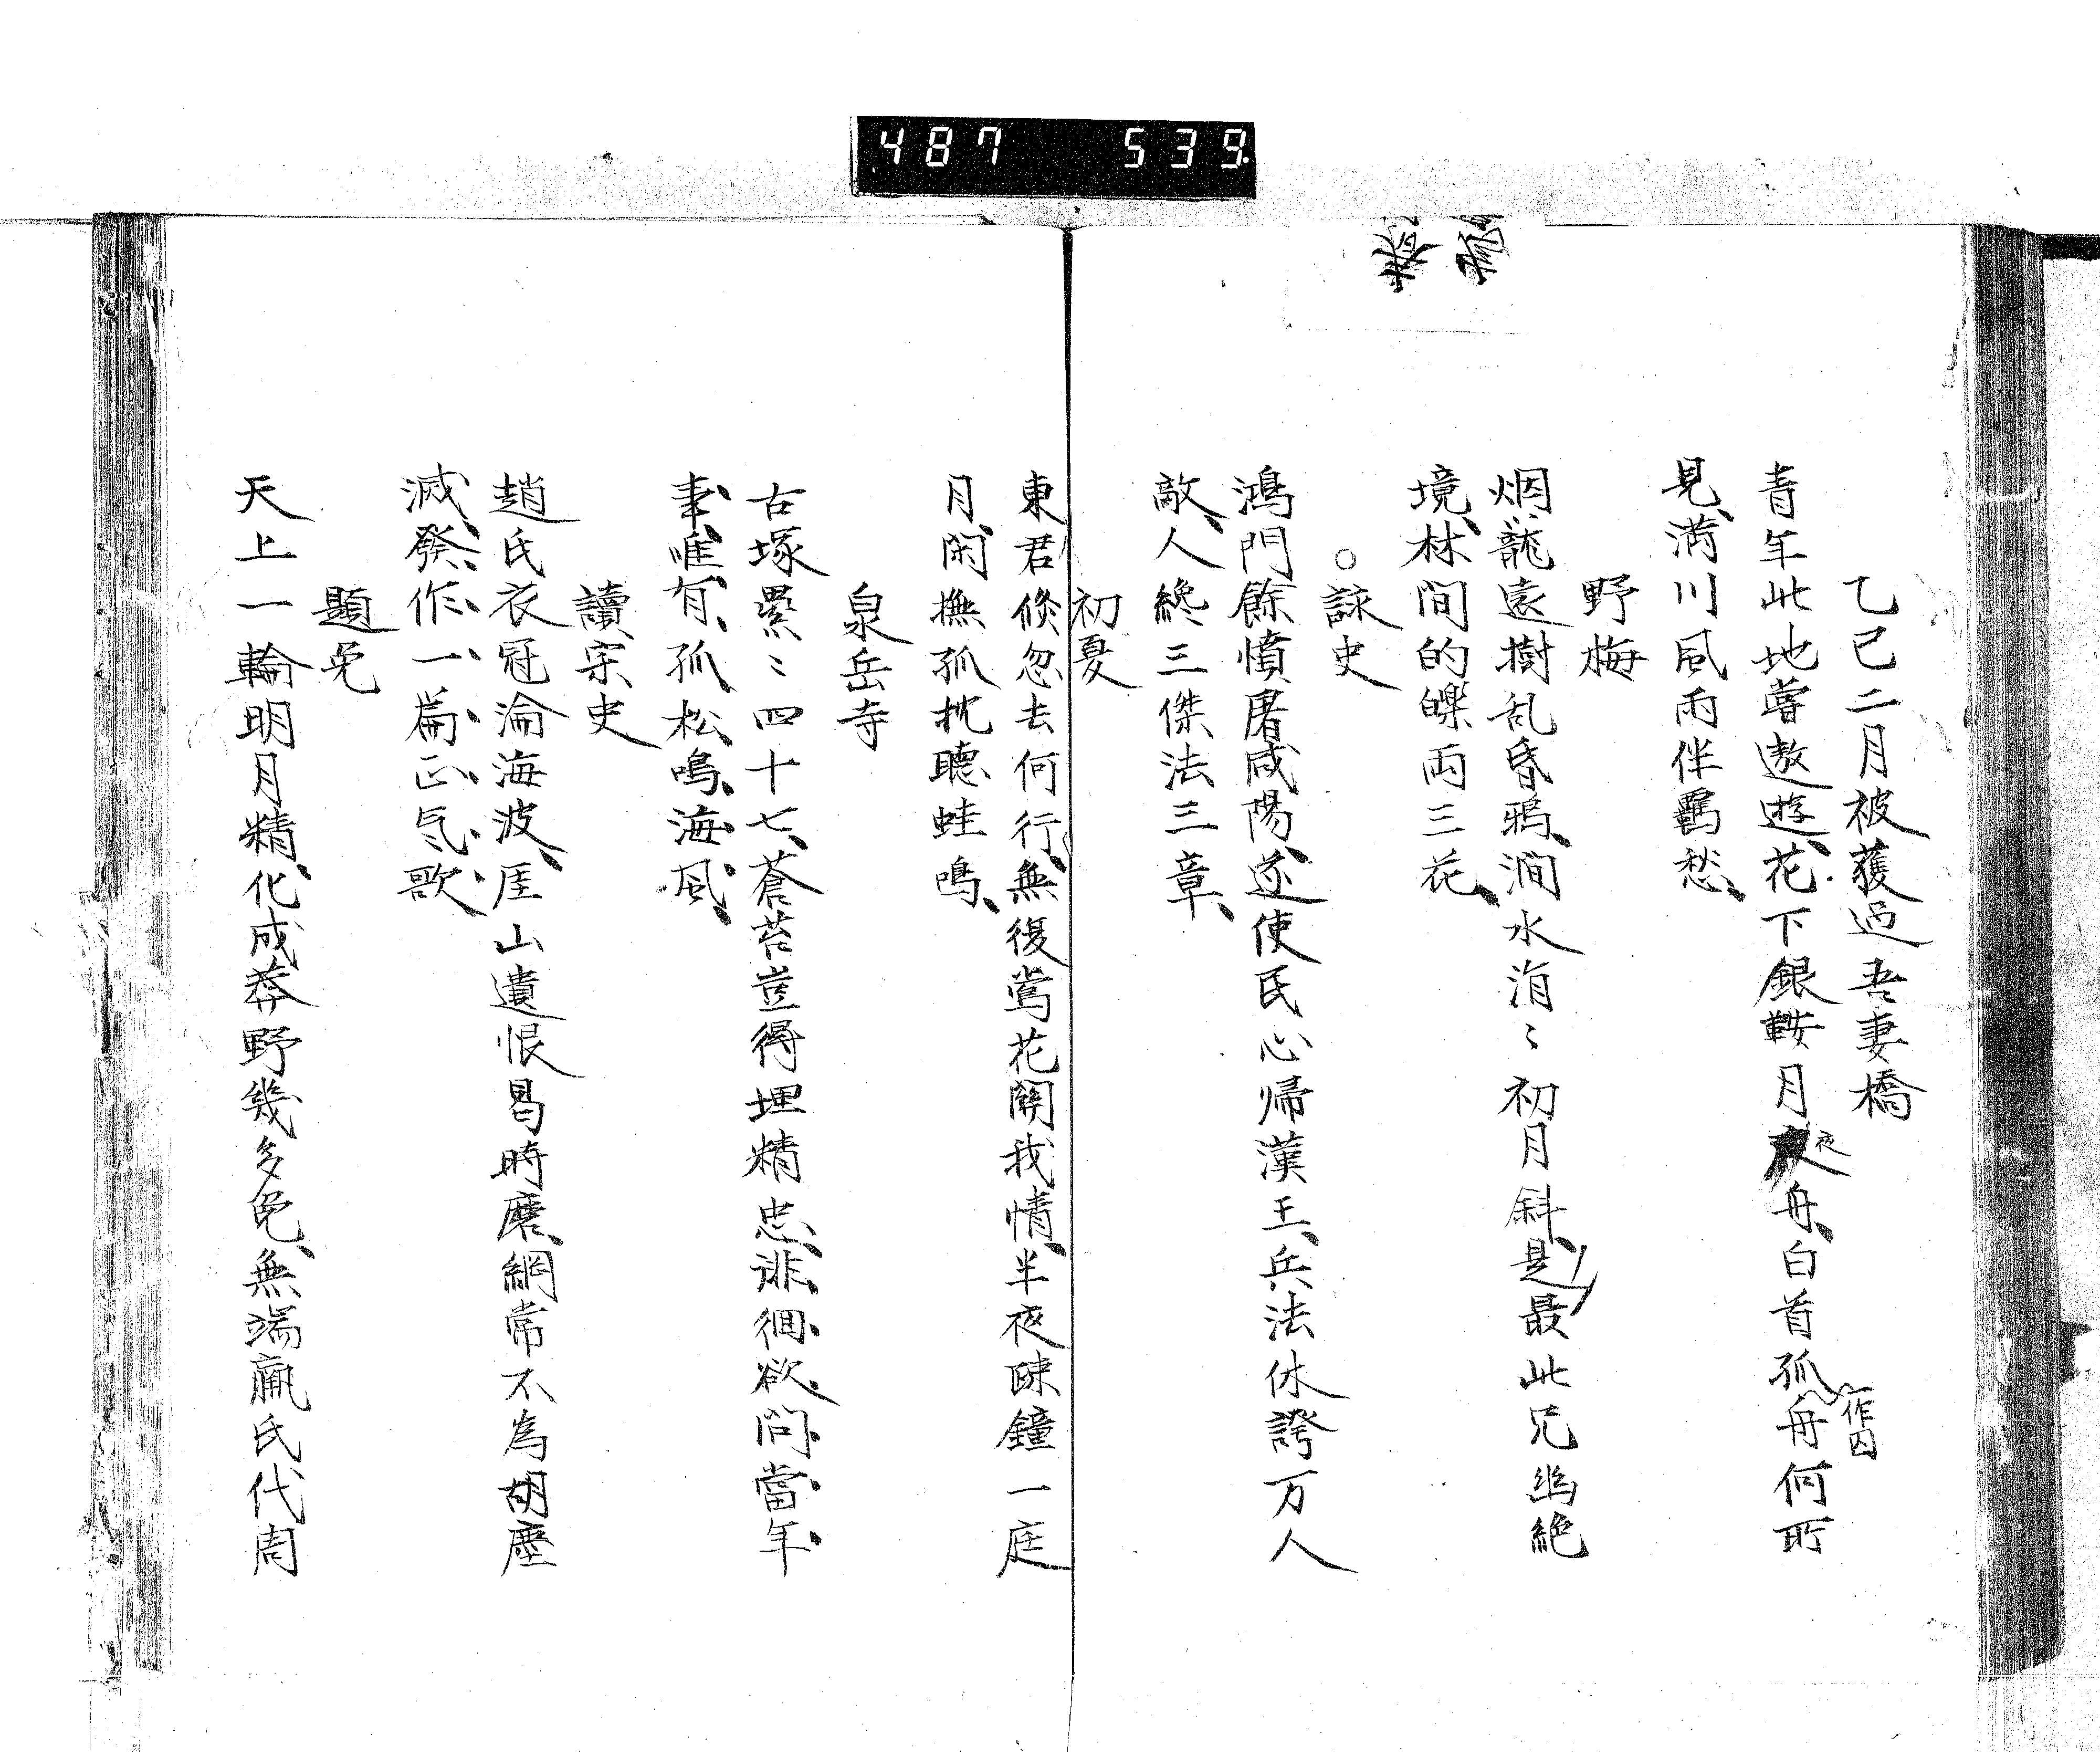 487 539
乙巳二月被獲過吾妻橋
青年此地嘗遨遊、花下銀鞍月夜舟、白首孤舟何所
夜
一作囚
見、満川風雨伴羈愁、
野梅
烟籠遠樹乱昏鴉、澗水涓〻初月斜、是最此兄幽絶
境、林間的皪両三花、
○詠史
鴻門餘憤屠咸陽、遂使民心帰漢王、兵法休誇万人
敵、人纔三傑法三章、
初夏
東君倐忽去何行、無復鶯花関我情、半夜疎鐘一庭
月、閑撫孤枕聴蛙鳴、
泉岳寺
古塚纍〻四十七、蒼苔豈得埋精忠、徘徊欲問當年
事、唯有孤松鳴海風、
讀宋史
趙氏衣冠淪海波、厓山遺恨曷時磨、綱常不為胡塵
滅、發作一篇正気歌
題兎
天上一輪明月精、化成莽野幾多兎、無端嬴氏代周